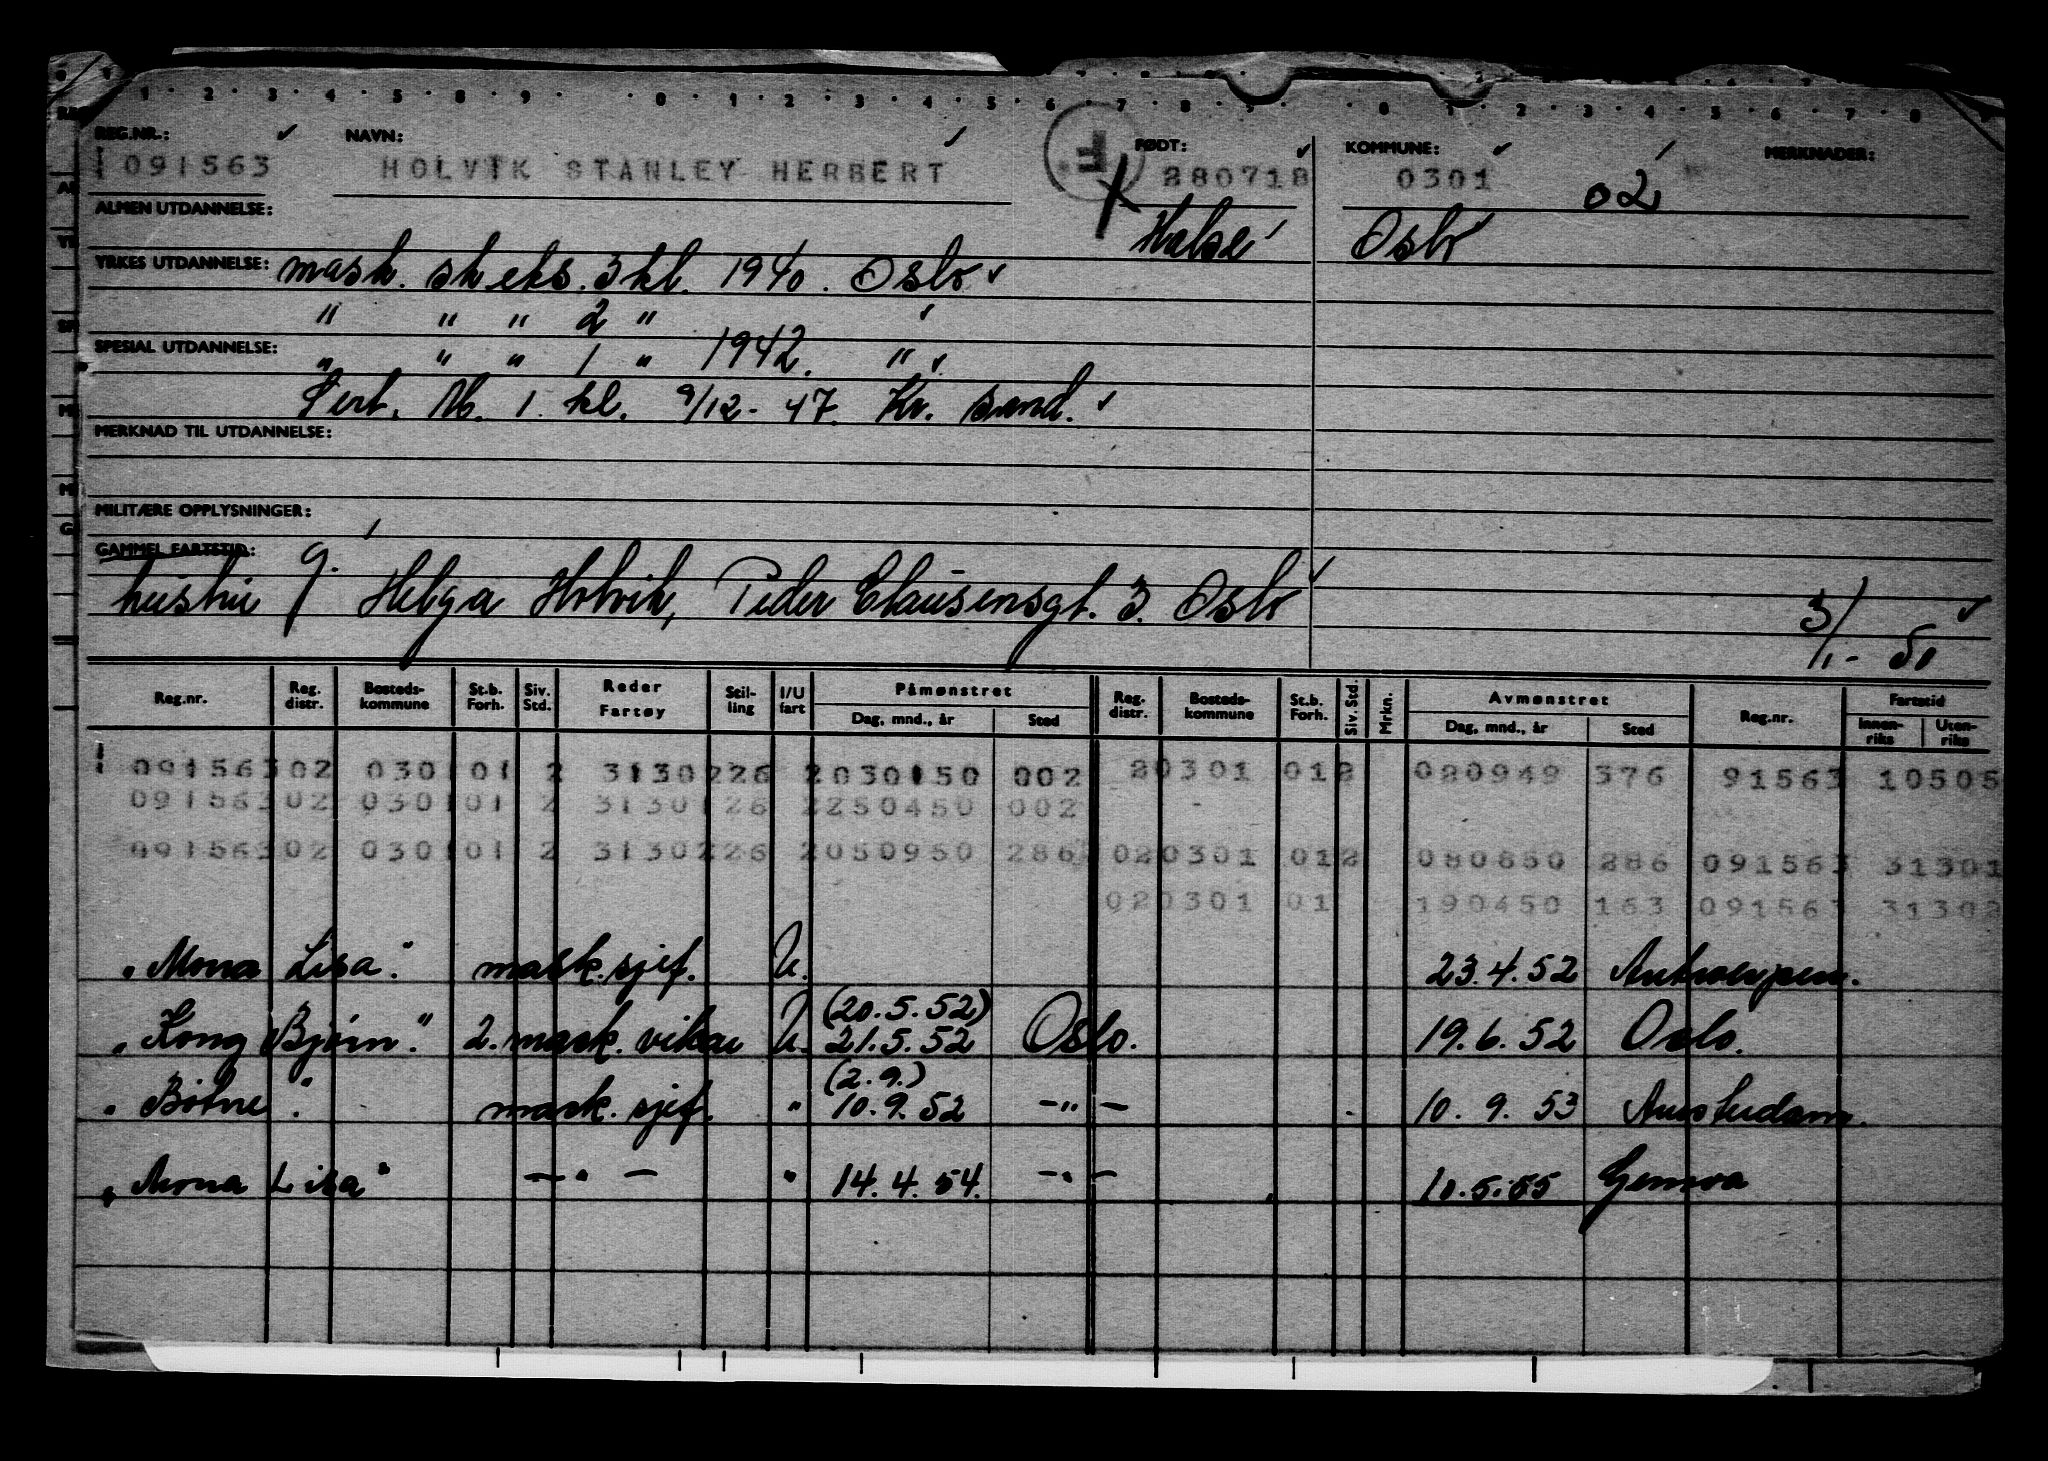 REG.NR.: NAVN: FØDT: KOMMUNE: MERKNADER:
091563 HOLVIK STANLEY HERBERT 280718 0301 02
ALMEN UTDANNELSE: Halse Oslo
YRKES UTDANNELSE: mask. sk.eks. 3 kl. 1940. Oslo
" " " 2 " "
SPESIAL UTDANNELSE: " " " 1 " 1942. "
Sert. M. 1. kl. 9/12-47. Kr. sand.
MERKNAD TIL UTDANNELSE:
MILITÆRE OPPLYSNINGER:
GAMMEL FARTSTID:
hustru g. Helga Holvik, Peder Clausensgt. 3. Oslo
3/1-50
Reg.nr. Reg. distr. Bosteds-kommune St.b. Forh. Siv. Std. Reder Fartøy Stil-ling I/U fart Påmønstret Dag, mnd., år Sted Reg. distr. Bosteds-kommune St.b. Forh. Siv. Std. Mrkn. Avmønstret Dag, mnd., år Sted Reg.nr. Fartstid Innen-riks Uten-riks
091563 02 0301 01 2 3130226 2030150 002 20301 012 080949 376 91563 10505
091563 02 0301 01 2 3130126 2250450 002
091563 02 0301 01 2 3130226 2050950 286 020301 012 080850 286 091563 31301
020301 01 190450 163 091563 31302
"Mona Lisa". mask. sjef. U. 23.4.52 Antwerpen.
(20.5.52)
"Kong Bjørn." 2. mask. vikar U. 21.5.52 Oslo. 19.6.52 Oslo.
(2.9.)
"Botne". mask. sjef. " 10.9.52 -"- 10.9.53 Amsterdam.
"Mona Lisa" -"- " 14.4.54. -"- 10.5.55 Genova